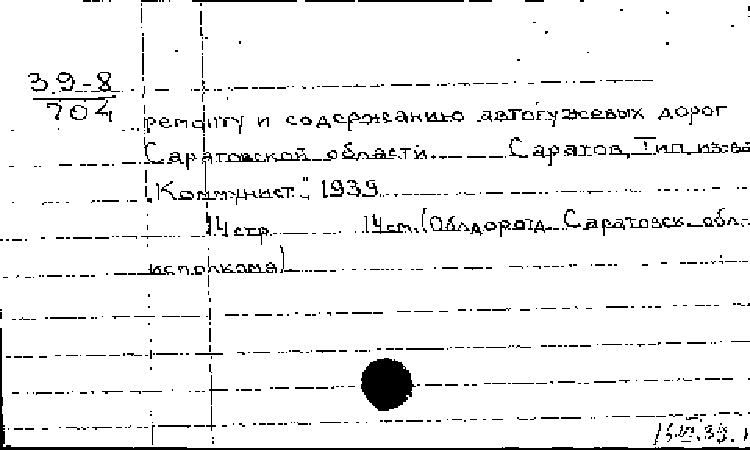 39-8
704
ремонту и содержанию автогужевых дорог
Саратовской области. Саратов, Тип. из-ва
"Коммунист", 1939
14 стр. 14 см. (Облдоротд. Саратовск. обл.
исполкома)